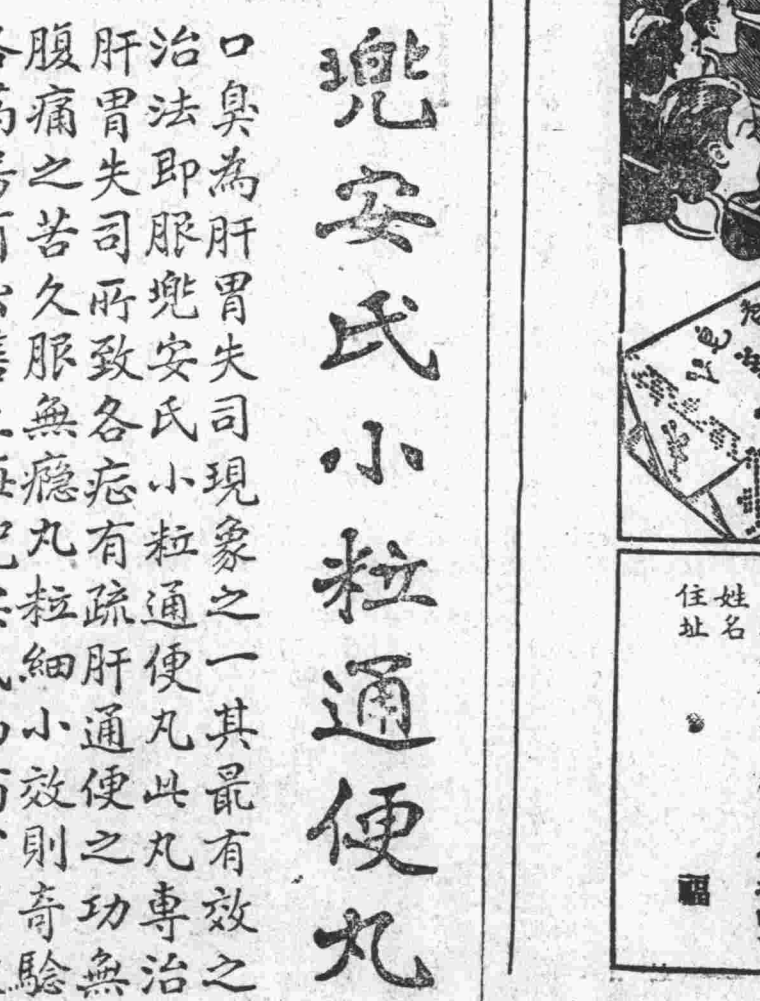 姓名
住址
福
兜安氏小粒通便丸
口臭為肝胃失司現象之一其最有效之
治法即服兜安氏小粒通便丸此丸專治
肝胃失司所致各症有疏肝通便之功無
腹痛之苦久服無癮丸粒細小效則奇驗